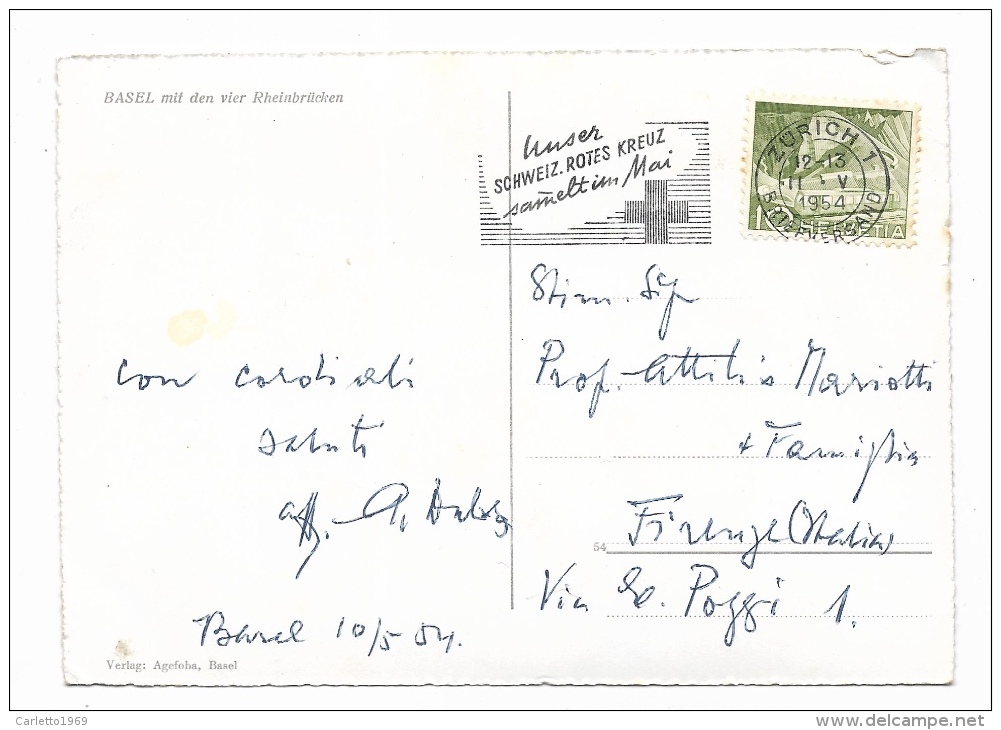 BASEL mit den vier Rheinbrücken
Unser
SCHWEIZ. ROTES KREUZ
sammelt im Mai
ZÜRICH 1
12-13
11. V
1954
BRIEFVERSAND
HELVETIA
Stim. Sig
Prof. Attilio Mariotti
+ Famiglia
Firenze (Italia)
54
Via G. Poggi 1.
con cordiali
saluti
aff. A.
Basel 10/5 54.
Verlag: Agefoba, Basel
Carletto1969
www.delcampe.net